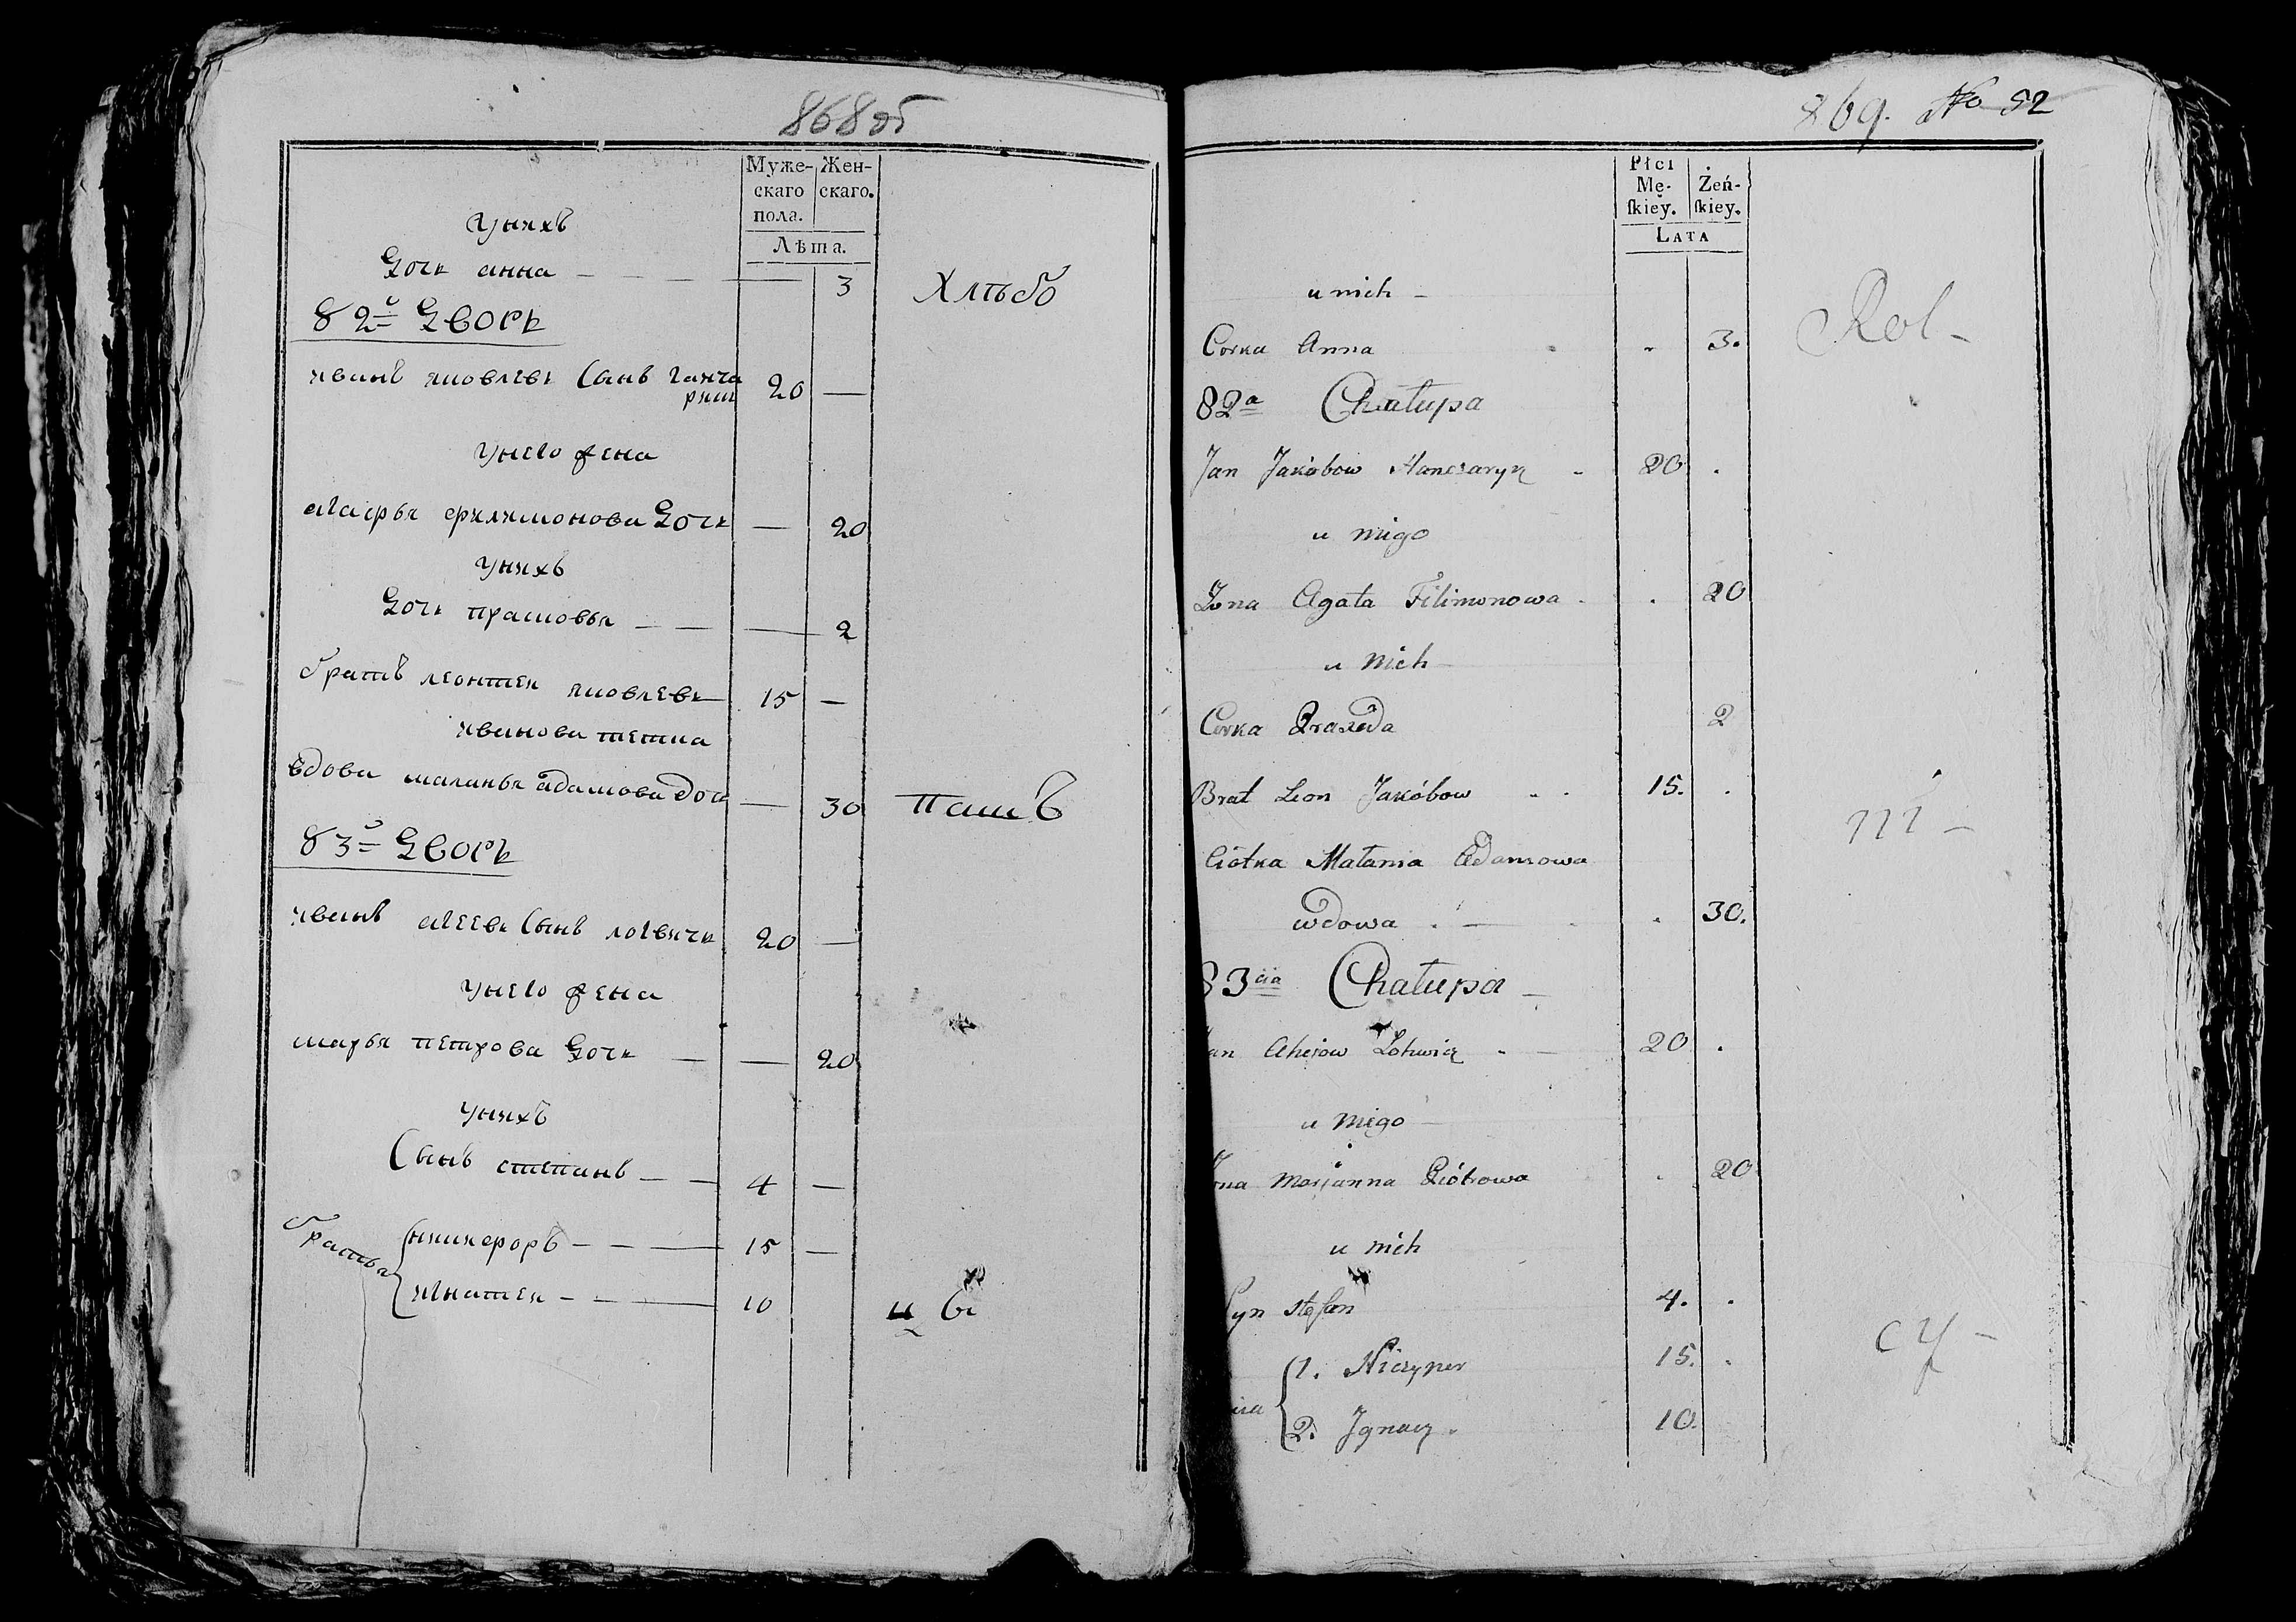 868 об
Муже-
скаго
пола.
Жен-
скаго.
Лѣта.
У нихъ
Дочь анна — 3
Хлѣбо
82й Дворъ
иванъ яковлевъ Сынъ ганча
рикъ 20 —
у него жена
агафья филимонова Дочь — 20
у нихъ
Дочь прасковья — 2
братъ леонтей яковлевъ 15 —
иванова тетка
вдова маланья адамова дочь — 30
пашъ
83й Дворъ
иванъ агеевъ Сынъ логвичъ 20 —
у него жена
марья петрова Дочь — 20
у нихъ
Сынъ степанъ — 4 —
братья
никифоръ — 15 —
игнатей — 10
цы
869. No 52
Płci
Mę-
ſkiey.
Żeń-
ſkiey.
LATA
u nich
Corka Anna . 3.
Rol-
82a Chałupa
Jan Jakóbow Hanczaryk 20 .
u niego
Zona Agata Filimonowa . 20
u nich
Corka Praxeda 2
Brat Leon Jakóbow 15. .
ni-
Ciotka Małania Adamowa
wdowa . 30.
83cia Chałupa
Jan Aheiow Lohwicz 20 .
u niego
Zona Marjanna Piótrowa . 20
u nich
Syn Stefan 4. .
cy-
1. Niczyper 15. .
2. Jgnacy 10.